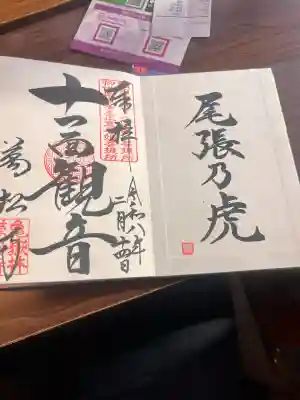 尾張乃虎
奉拝
令和八年
二月十四日
十一面観音
萬松寺